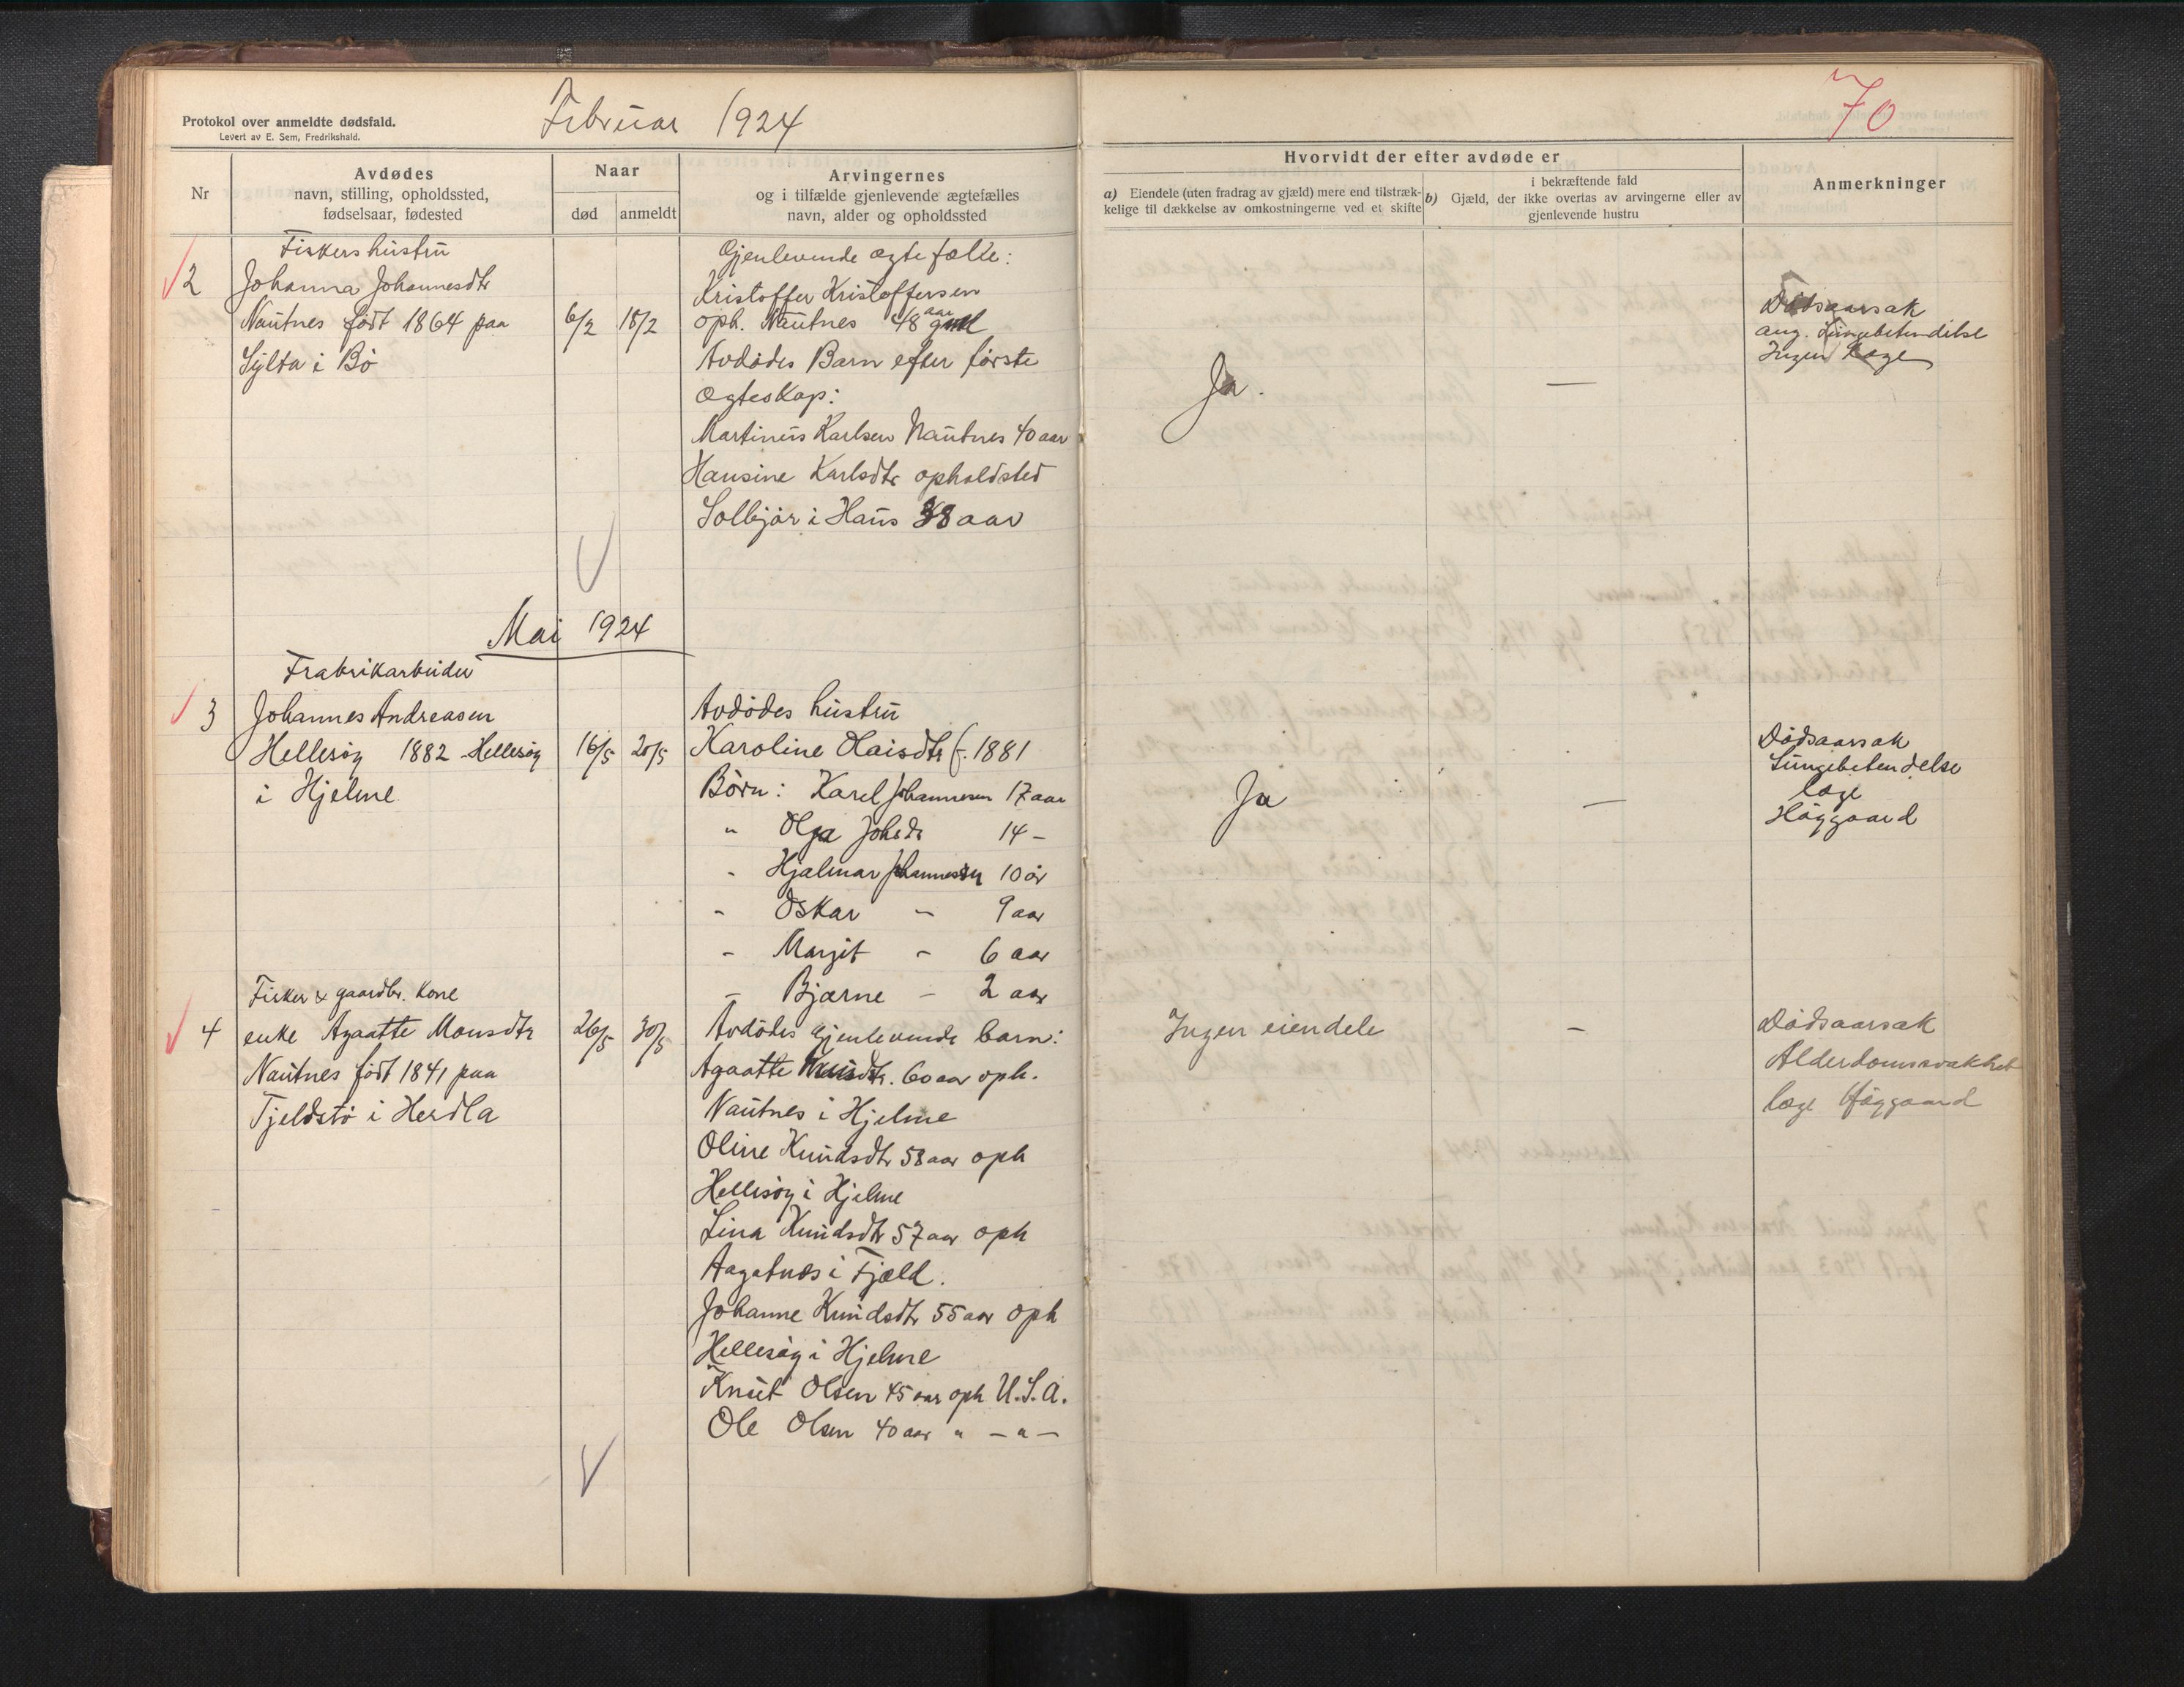 Protokol over anmeldte dødsfald.
Levert av E. Sem, Fredrikshald.
Februar 1924
70
Nr
Avdødes
navn, stilling, opholdssted,
fødselsaar, fødested
Naar
død
anmeldt
Arvingernes
og i tilfælde gjenlevende ægtefælles
navn, alder og opholdssted
Hvorvidt der efter avdøde er
a) Eiendele (uten fradrag av gjæld) mere end tilstræk-
kelige til dækkelse av omkostningerne ved et skifte
i bekræftende fald
b) Gjæld, der ikke overtas av arvingerne eller av
gjenlevende hustru
Anmerkninger
2
Fiskers hustru
Johanna Johannesdtr
Nautnes født 1864 paa
Sylta i Bö
6/2
18/2
Gjenlevende ægtefælle:
Kristoffer Kristoffersen
oph. Nautnes 48 aar
Avdødes Barn efter første
Ægteskap:
Martinus Karlsen Nautnes 40 aar
Hansine Karlsdtr opholdsted
Solbjør i Haus 38 aar
Ja.
—
Dødsaarsak
ang. Lungebetendelse
Ingen læge
Mai 1924
3
Frabrikarbeider
Johannes Andreasen
Hellesøy 1882 Hellesøy
i Hjelme
16/5
20/5
Avdødes hustru
Karoline Olaisdtr f. 1881
Børn: Karel Johannesen 17 aar
" Olga Johsdr 14 –
" Hjalmar Johannessen 10 år
" Oskar – 9 aar
– Margit – 6 aar
– Bjarne – 2 aar
Ja
—
Dødsaarsak
Lungebetendelse
læge
Häggaard
4
Fisker & gaardbr. kone
enke Agaatte Monsdtr
Nautnes født 1841 paa
Tjeldstö i Herdla
26/5
30/5
Avdødes gjenlevende barn:
Agaatte 60 aar oph.
Nautnes i Hjelme
Oline Knudsdtr 58 aar oph
Hellesøy i Hjelme
Lina Knudsdtr 57 aar oph
Aagatnes i Fjæld.
Johanne Knudsdtr 55 aar oph
Hellesøy i Hjelme
Knut Olsen 45 aar oph U.S.A.
Ole Olsen 40 aar " – " –
Ingen eiendele
–
Dødsaarsak
Alderdomssvakhet
læge Häggaard